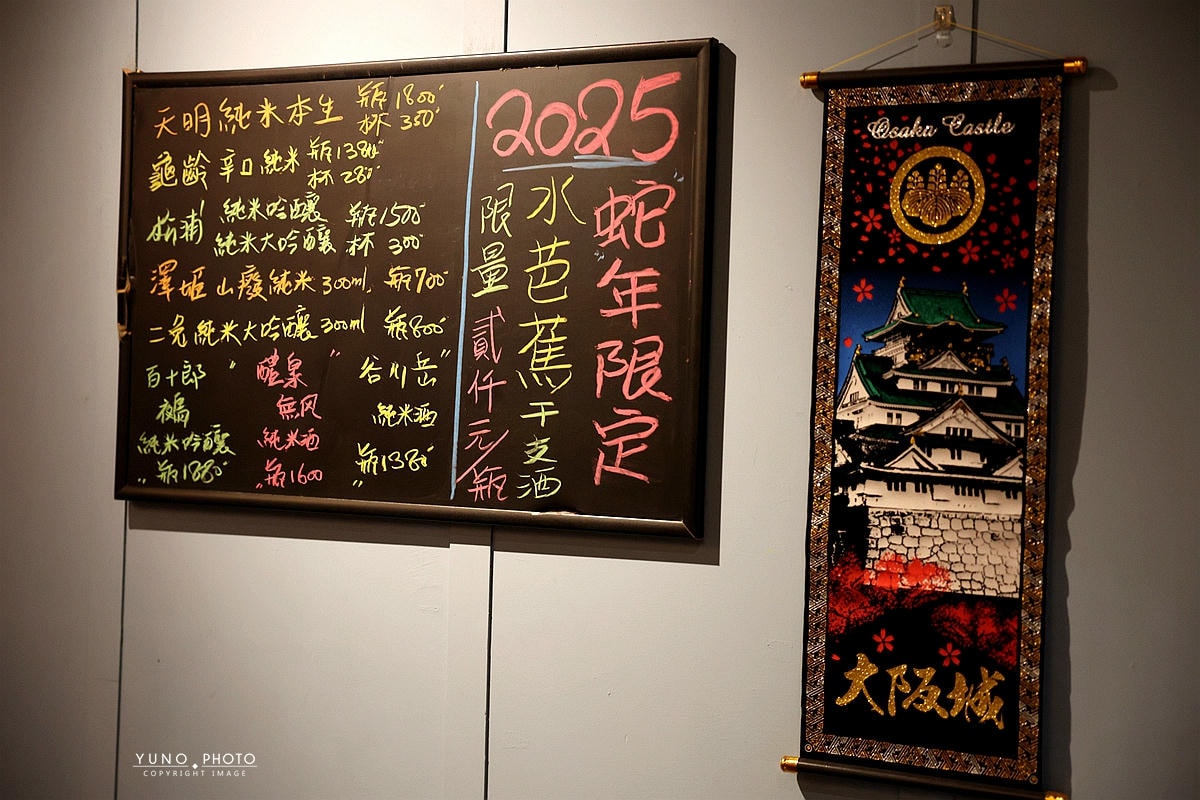 天明 純米本生 瓶 1800
杯 350
龜齡 辛口 純米 瓶 1380
杯 280
松浦 純米吟釀 瓶 1500
純米大吟釀 杯 300
澤姬 山廢純米 300ml. 瓶700
二兎 純米大吟釀 300ml 瓶800
百十郎
純米吟釀
瓶1880
醴泉
無风
純米酒
瓶1600
谷川岳
純米酒
瓶1380
2025
蛇年限定
水芭蕉干支酒
限量貳仟元/瓶
Osaka Castle
大阪城
YUNO PHOTO
COPYRIGHT IMAGE